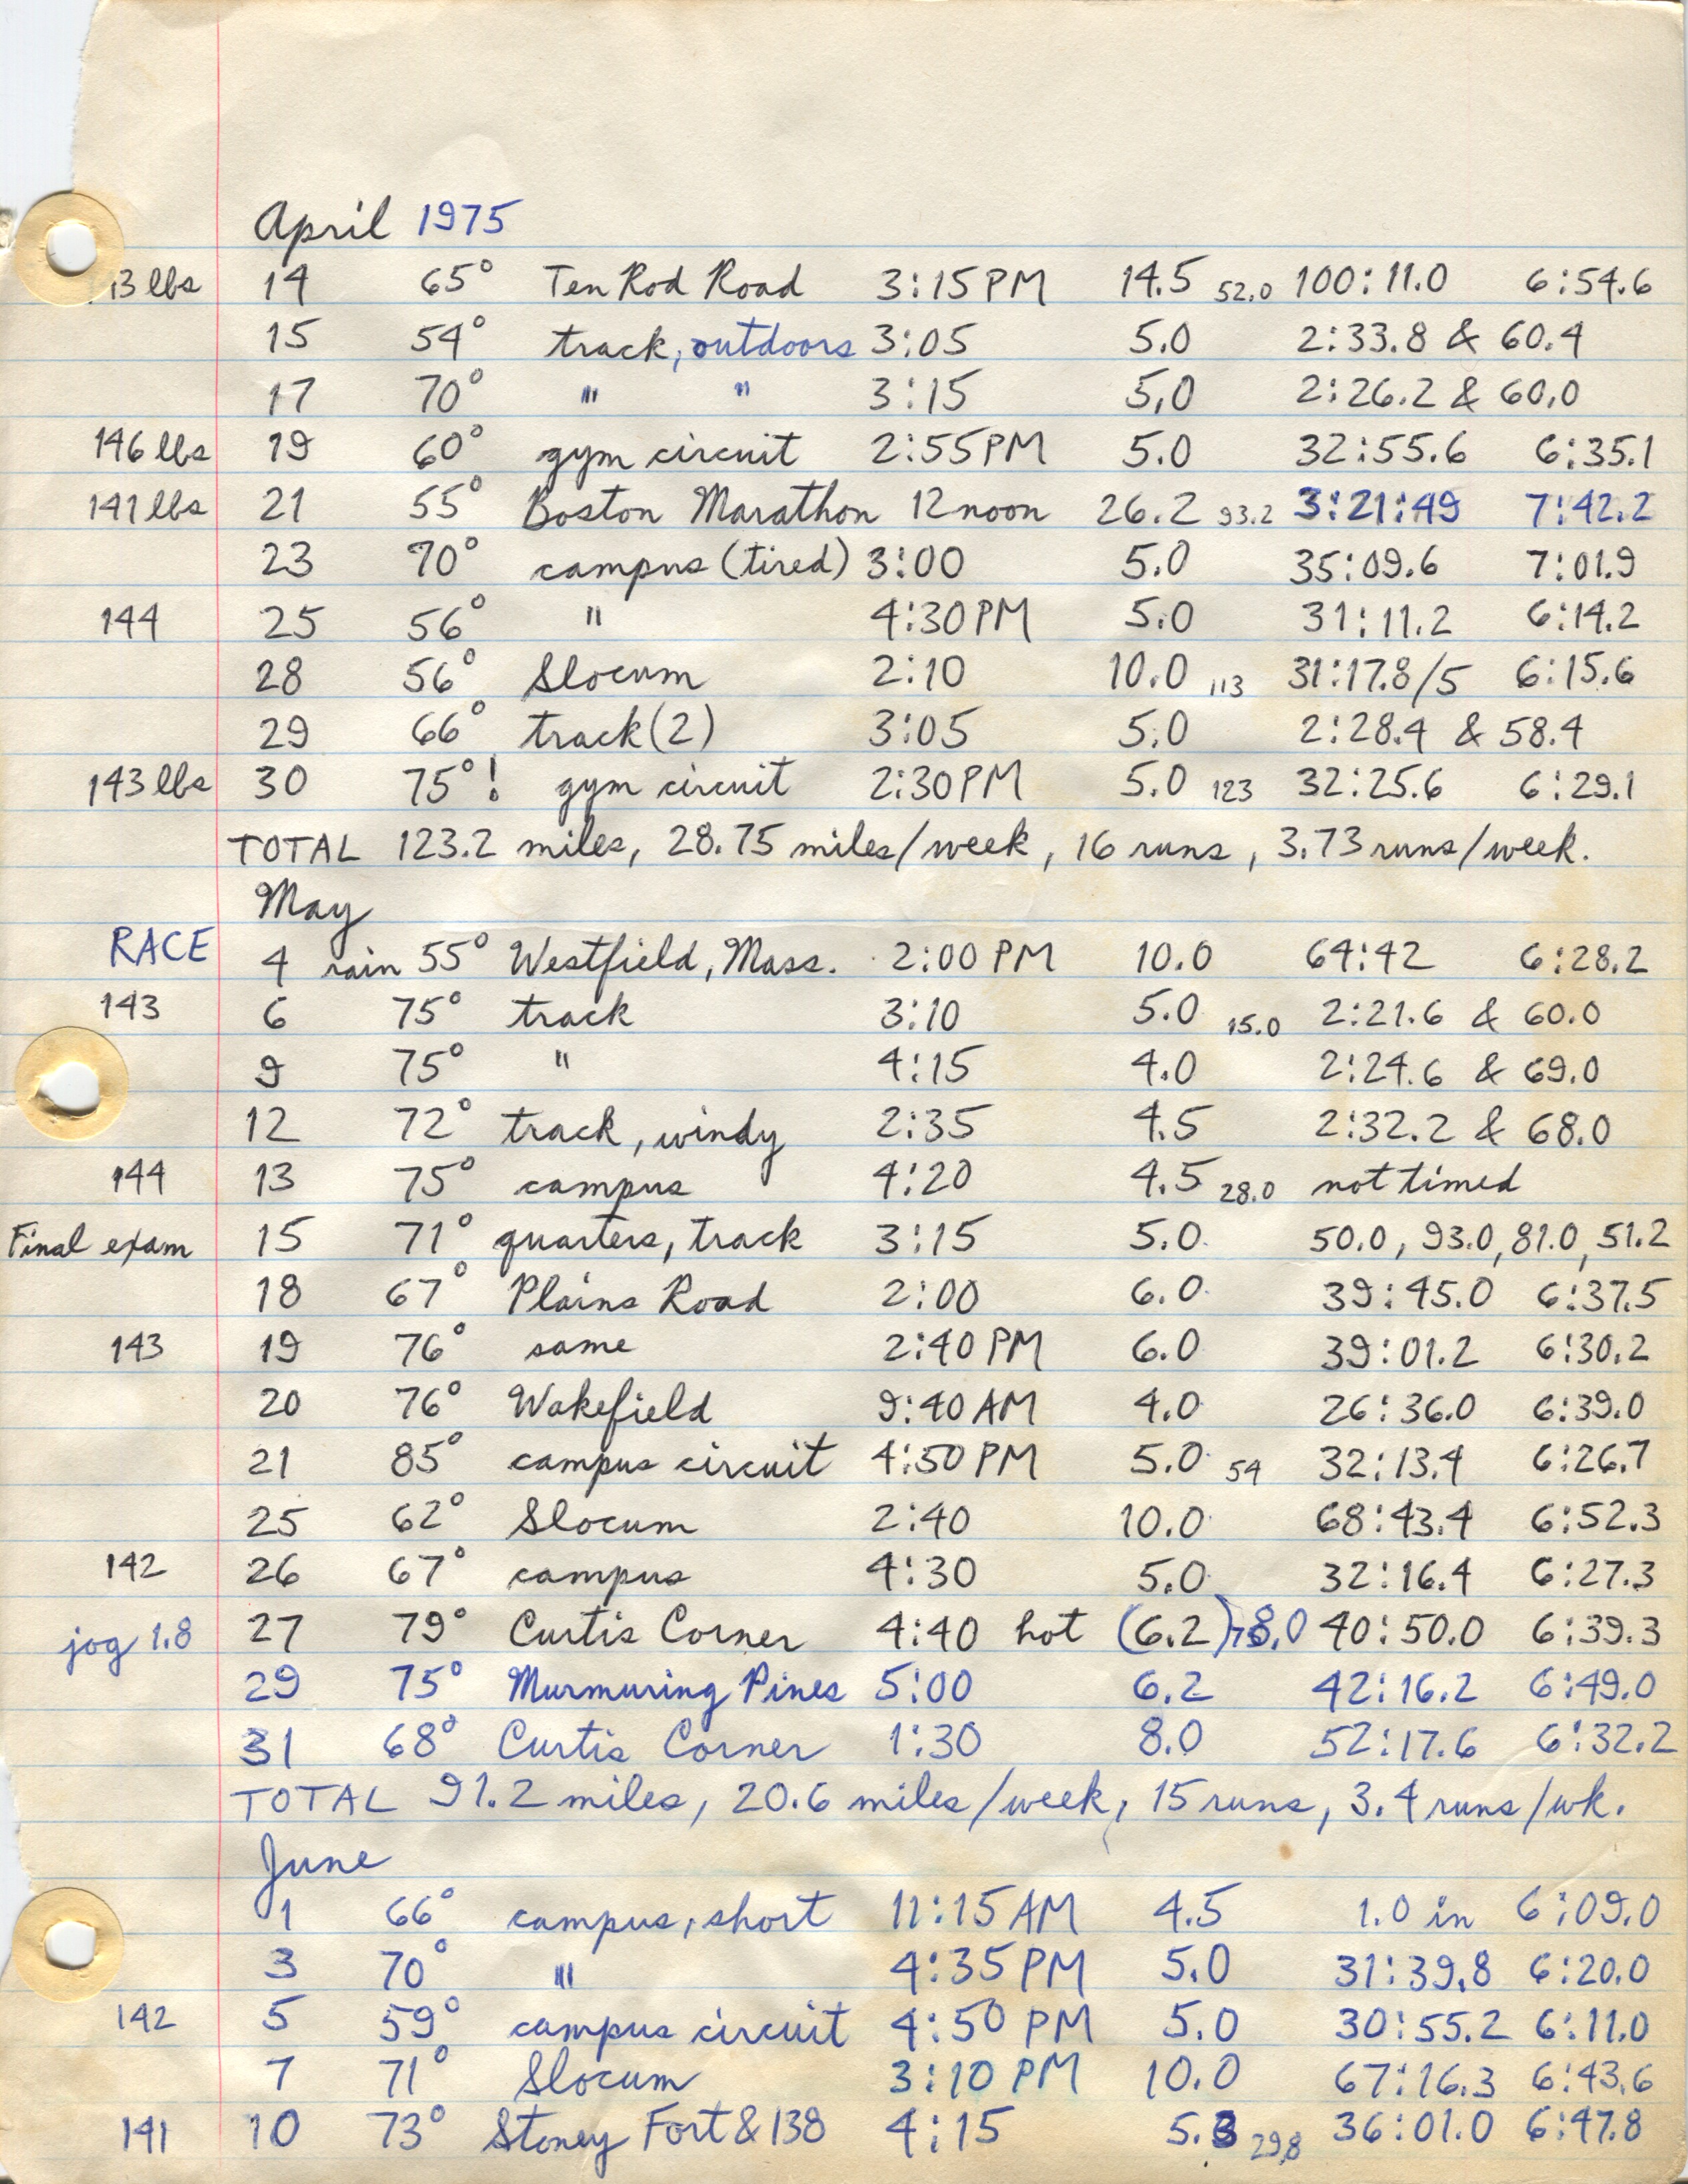 April 1975
3 lbs 14 65° Ten Rod Road 3:15 PM 14.5 52.0 100:11.0 6:54.6
15 54° track, outdoors 3:05 5.0 2:33.8 & 60.4
17 70° " " 3:15 5.0 2:26.2 & 60.0
146 lbs 19 60° gym circuit 2:55 PM 5.0 32:55.6 6:35.1
141 lbs 21 55° Boston Marathon 12 noon 26.2 93.2 3:21:49 7:42.2
23 70° campus (tired) 3:00 5.0 35:09.6 7:01.9
144 25 56° " 4:30 PM 5.0 31:11.2 6:14.2
28 56° Slocum 2:10 10.0 113 31:17.8/5 6:15.6
29 66° track (2) 3:05 5.0 2:28.4 & 58.4
143 lbs 30 75°! gym circuit 2:30 PM 5.0 123 32:25.6 6:29.1
TOTAL 123.2 miles, 28.75 miles/week, 16 runs, 3.73 runs/week.
May
RACE 4 rain 55° Westfield, Mass. 2:00 PM 10.0 64:42 6:28.2
143 6 75° track 3:10 5.0 15.0 2:21.6 & 60.0
9 75° " 4:15 4.0 2:24.6 & 69.0
12 72° track, windy 2:35 4.5 2:32.2 & 68.0
144 13 75° campus 4:20 4.5 28.0 not timed
Final exam 15 71° quarters, track 3:15 5.0 50.0, 93.0, 81.0, 51.2
18 67° Plains Road 2:00 6.0 39:45.0 6:37.5
143 19 76° same 2:40 PM 6.0 39:01.2 6:30.2
20 76° Wakefield 9:40 AM 4.0 26:36.0 6:39.0
21 85° campus circuit 4:50 PM 5.0 54 32:13.4 6:26.7
25 62° Slocum 2:40 10.0 68:43.4 6:52.3
142 26 67° campus 4:30 5.0 32:16.4 6:27.3
jog 1.8 27 79° Curtis Corner 4:40 hot (6.2) 8.0 40:50.0 6:39.3
29 75° Murmuring Pines 5:00 6.2 42:16.2 6:49.0
31 68° Curtis Corner 1:30 8.0 52:17.6 6:32.2
TOTAL 91.2 miles, 20.6 miles/week, 15 runs, 3.4 runs/wk.
June
1 66° campus, short 11:15 AM 4.5 1.0 in 6:09.0
3 70° " 4:35 PM 5.0 31:39.8 6:20.0
142 5 59° campus circuit 4:50 PM 5.0 30:55.2 6:11.0
7 71° Slocum 3:10 PM 10.0 67:16.3 6:43.6
141 10 73° Stoney Fort & 138 4:15 5.3 29.8 36:01.0 6:47.8